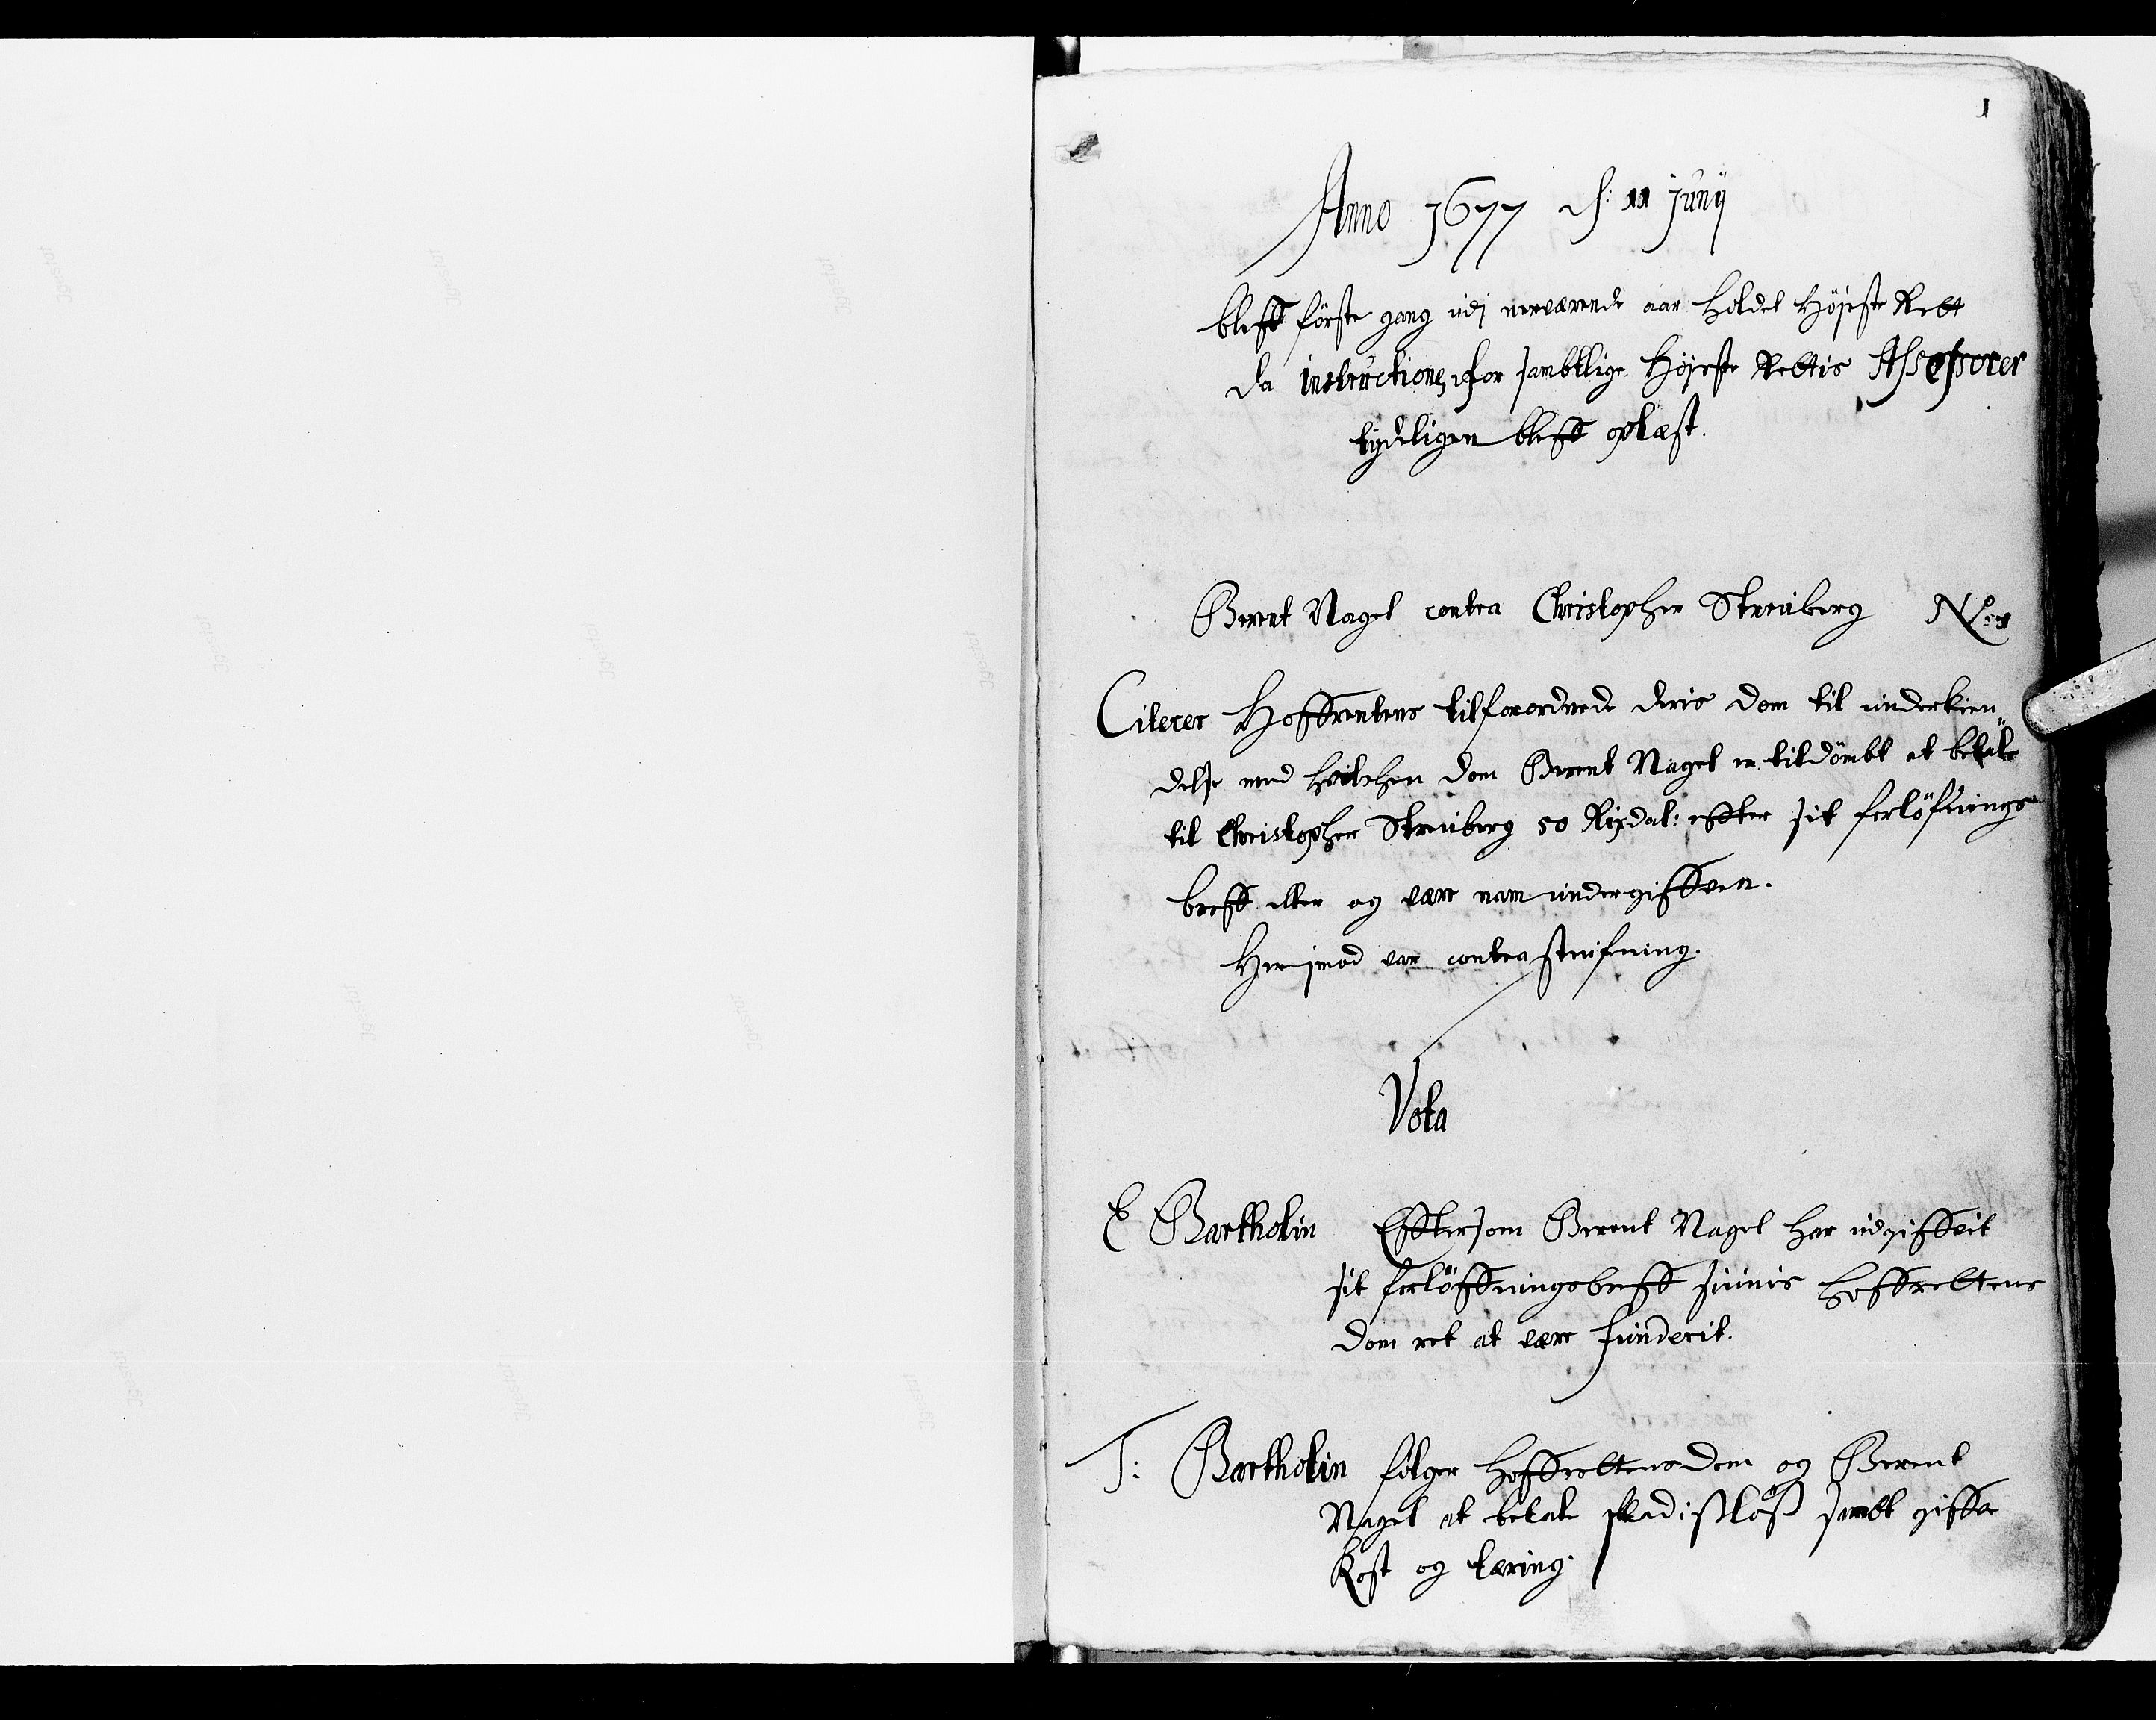 1
Anno 1677 d: 11 Junij
bleff første gang udj nerværende aar holdet Høyeste Rett
da instructionen for sambtlige Høyeste Rettis Assessorer
tydeligen bleff oplæst.
Berent Nagel contra Christopher Streuberg No: 1
Citerer Hoffrettens tilforordnede deris dom til underkien
delse med hvilchen dom Berent Nagel er tildömbt at betale
til Christopher Streuberg 50 Rixdal: effter sit forlöfnings
breff eller og være nam undergiffven.
Herjmod var contrasteufning.
Vota
E Bartholin Efftersom Berent Nagel har udgiffvit
sit forlöffningsbreff siunis Hoffrettens
dom ret at være funderit.
T: Bartholin følger hoffrettens dom og Berent
Nagel at betale skadislöß sambt giffve
Kost og tæring.